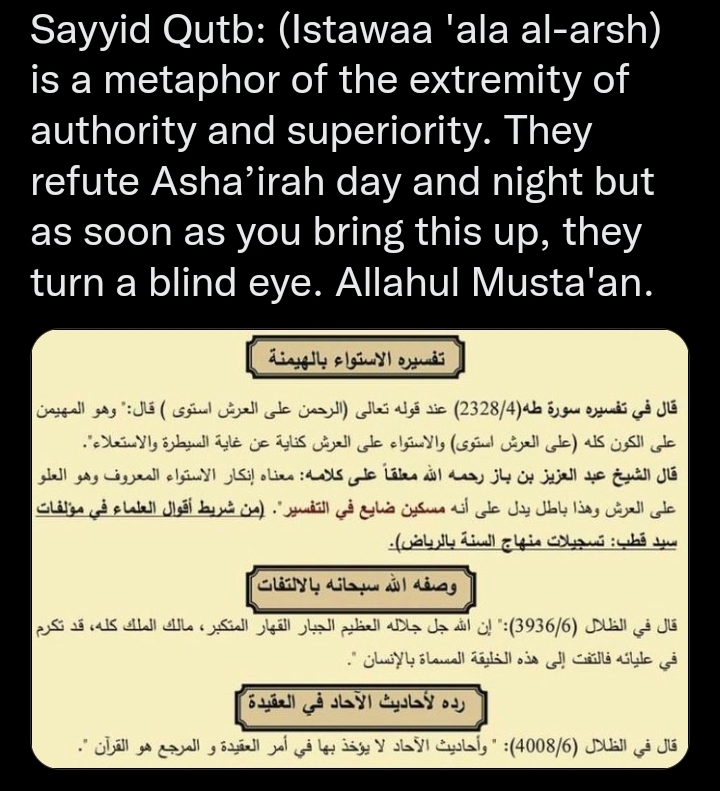 Sayyid Qutb: (Istawaa 'ala al-arsh)
is a metaphor of the extremity of
authority and superiority. They
refute Asha’irah day and night but
as soon as you bring this up, they
turn a blind eye. Allahul Musta'an.
تفسيره الاستواء بالهيمنة
قال في تفسيره سورة طه(2328/4) عند قوله تعالى (الرحمن على العرش استوى ) قال:" وهو المهيمن
على الكون كله (على العرش استوى) والاستواء على العرش كناية عن غاية السيطرة والاستعلاء".
قال الشيخ عبد العزيز بن باز رحمه الله معلقاً على كلامه: معناه إنكار الاستواء المعروف وهو العلو
على العرش وهذا باطل يدل على أنه مسكين ضايع في التفسير". (من شريط أقوال العلماء في مؤلفات
سيد قطب: تسجيلات منهاج السنة بالرياض).
وصفه الله سبحانه بالالتفات
قال في الظلال (3936/6):" إن الله جل جلاله العظيم الجبار القهار المتكبر، مالك الملك كله، قد تكرم
في عليائه فالتفت إلى هذه الخليقة المسماة بالإنسان ".
رده لأحاديث الآحاد في العقيدة
قال في الظلال (4008/6): " وأحاديث الآحاد لا يؤخذ بها في أمر العقيدة و المرجع هو القرآن ".